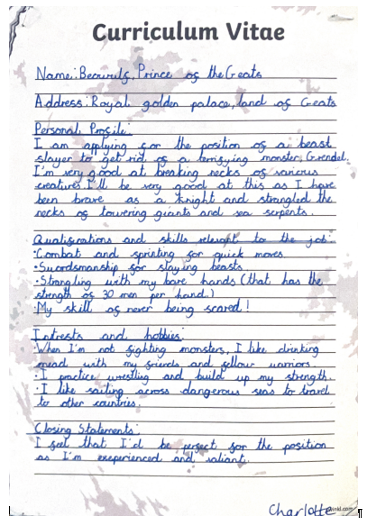 Curriculum Vitae
Name: Beowulf, Prince of the Geats
Address: Royal golden palace, land of Geats
Personal Profile:
I am applying for the position of a beast
slayer to get rid of a terrifying monster, Grendel.
I'm very good at breaking necks of various
creatures. I'll be very good at this as I have
been brave as a knight and strangled the
necks of towering giants and sea serpents.
Qualifications and skills relevant to the job:
·Combat and sprinting for quick moves.
·Swordsmanship for slaying beasts.
·Strangling with my bare hands (that has the
strength of 30 men per hand.)
·My skill of never being scared!
Intrests and hobbies:
·When I'm not fighting monsters, I like drinking
mead with my friends and fellow warriors.
·I practice wrestling and build up my strength.
·I like sailing across dangerous seas to travel
to other countries.
Closing Statements:
I feel that I'd be perfect for the position
as I'm exeperienced and valiant.
Charlotte